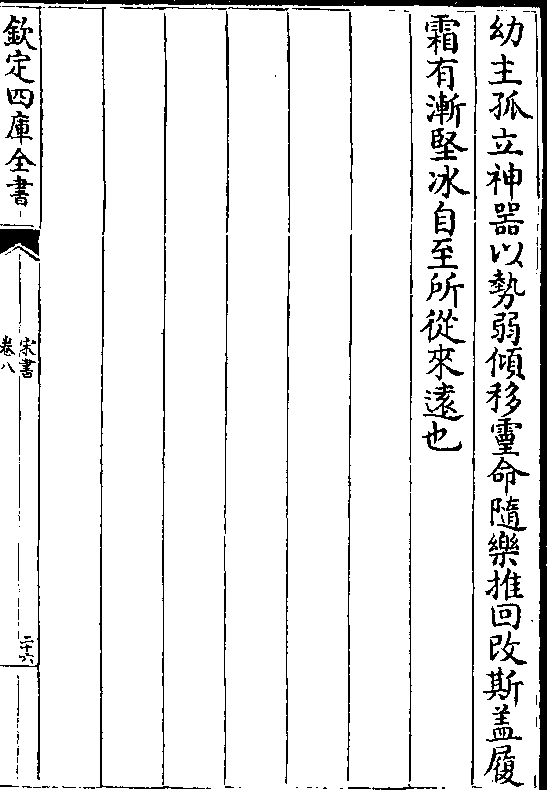 幼主孤立神器以勢弱傾移靈命隨樂推回改斯盖履
霜有漸堅冰自至所從來遠也
欽定四庫全書
宋書
卷八
二十六